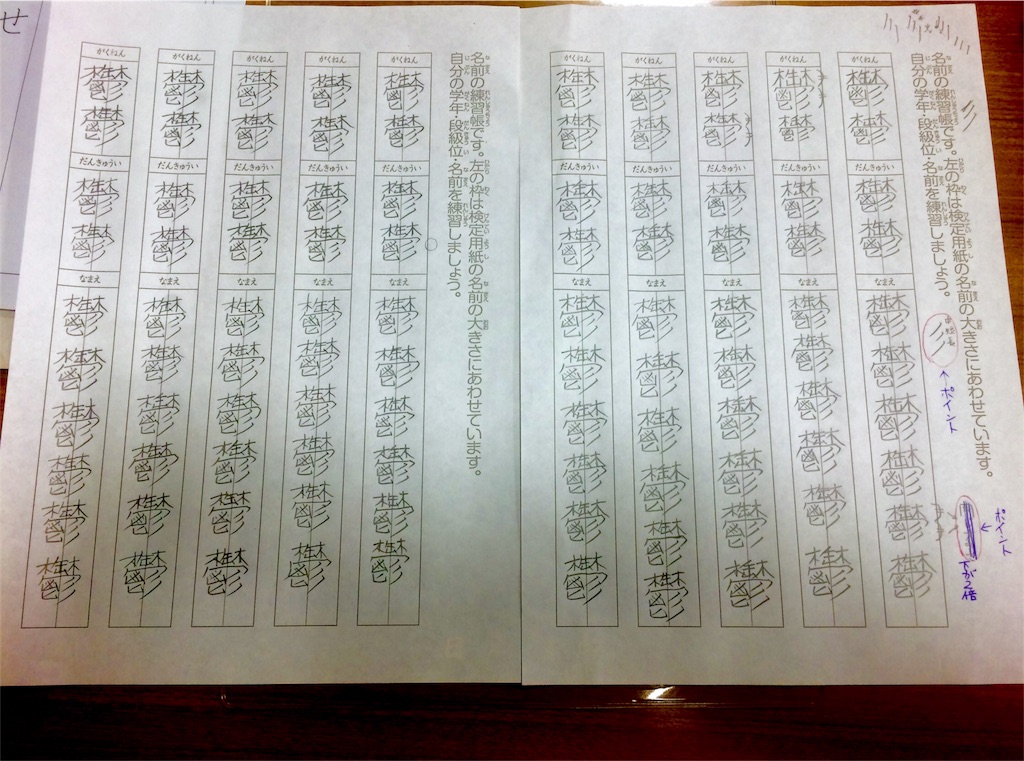 名前の練習帳です。左の枠は検定用紙の名前の大きさにあわせています。
自分の学年・段級位・名前を練習しましょう。
ポイント
ポイント
下が2倍
がくねん
鬱鬱
だんきゅうい
鬱鬱
なまえ
鬱鬱鬱鬱鬱鬱
がくねん
鬱鬱
だんきゅうい
鬱鬱
なまえ
鬱鬱鬱鬱鬱鬱
がくねん
鬱鬱
だんきゅうい
鬱鬱
なまえ
鬱鬱鬱鬱鬱鬱
がくねん
鬱鬱
だんきゅうい
鬱鬱
なまえ
鬱鬱鬱鬱鬱鬱
がくねん
鬱鬱
だんきゅうい
鬱鬱
なまえ
鬱鬱鬱鬱鬱鬱
名前の練習帳です。左の枠は検定用紙の名前の大きさにあわせています。
自分の学年・段級位・名前を練習しましょう。
がくねん
鬱鬱
だんきゅうい
鬱鬱
なまえ
鬱鬱鬱鬱鬱鬱
がくねん
鬱鬱
だんきゅうい
鬱鬱
なまえ
鬱鬱鬱鬱鬱鬱
がくねん
鬱鬱
だんきゅうい
鬱鬱
なまえ
鬱鬱鬱鬱鬱鬱
がくねん
鬱鬱
だんきゅうい
鬱鬱
なまえ
鬱鬱鬱鬱鬱鬱
がくねん
鬱鬱
だんきゅうい
鬱鬱
なまえ
鬱鬱鬱鬱鬱鬱
せ